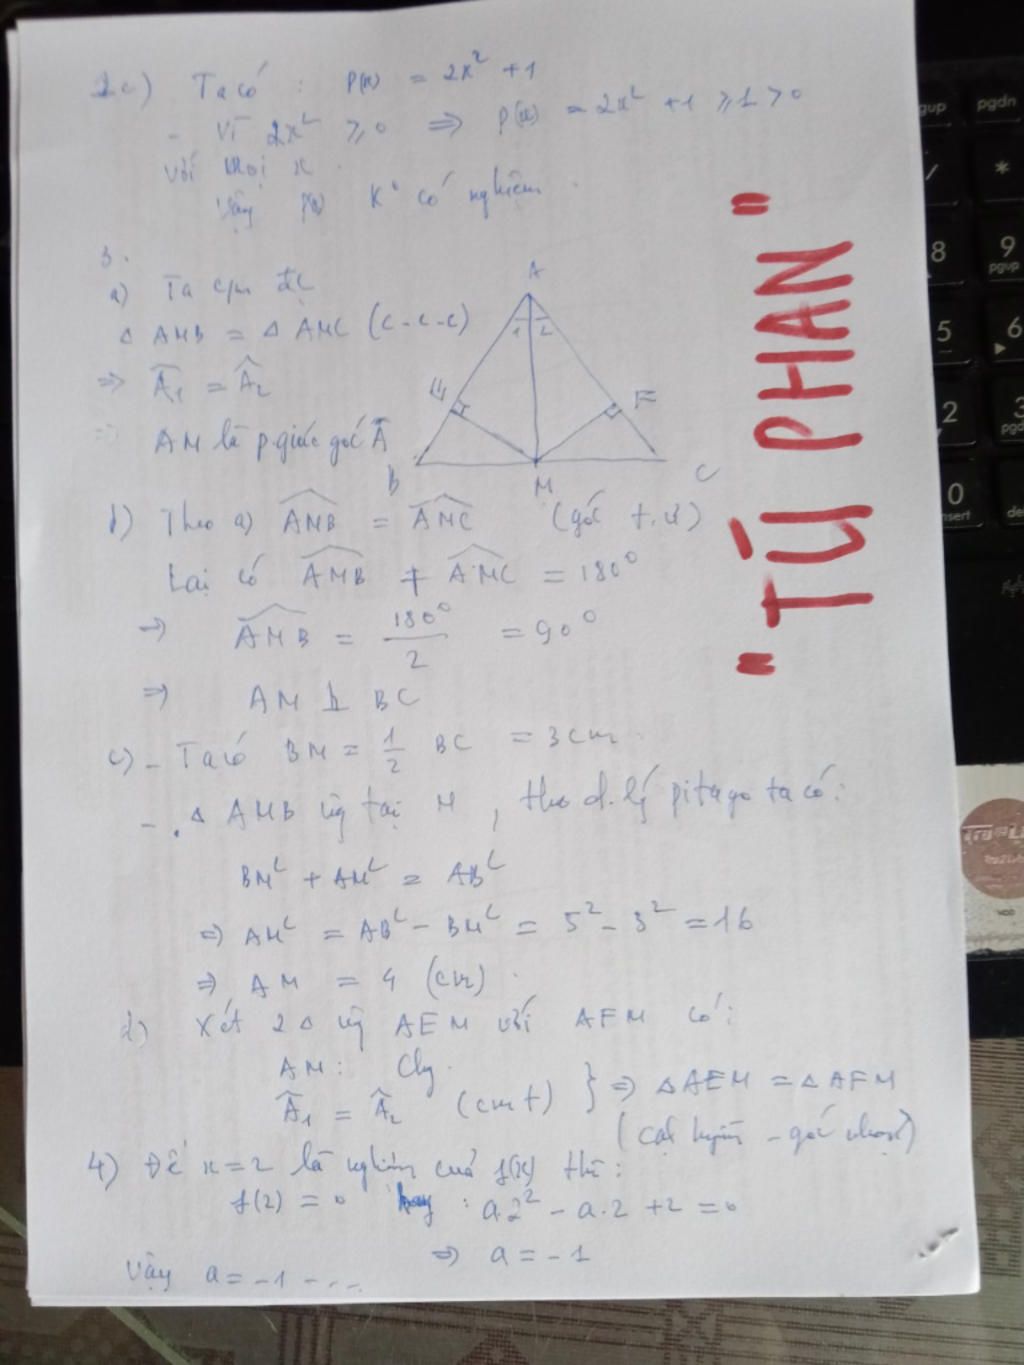 2c) Ta có : P(x) = 2x² + 1
- Vì 2x² ≥ 0 => P(x) = 2x² + 1 ≥ 1 > 0
với mọi x.
Vậy P(x) K° có nghiệm.
3.
a) Ta c/m đc
Δ AMB = Δ AMC (c-c-c)
=> Â₁ = Â₂
=> AM là p.giác góc Â
A
1 2
E F
B M C
b) Theo a) AMB = AMC (góc t.ư)
Lại có AMB + AMC = 180°
=> AMB = 180°/2 = 90°
=> AM ⊥ BC
c) - Ta có BM = 1/2 BC = 3cm.
- Δ AMB vg tại M, theo đ.lý pitago ta có:
BM² + AM² = AB²
=> AM² = AB² - BM² = 5² - 3² = 16
=> AM = 4 (cm).
d) Xét 2Δ vg AEM với AFM có:
AM: Chg.
Â₁ = Â₂ (cmt) } => ΔAEM = ΔAFM
(cạh huyền - góc nhọn)
4) Để x = 2 là nghiệm của f(x) thì:
f(2) = 0 hay : a.2² - a.2 + 2 = 0
=> a = -1
Vậy a = -1 - ...
"TÚ PHAN"
pgup
pgdn
/
*
8
9
pgup
5
6
2
3
0